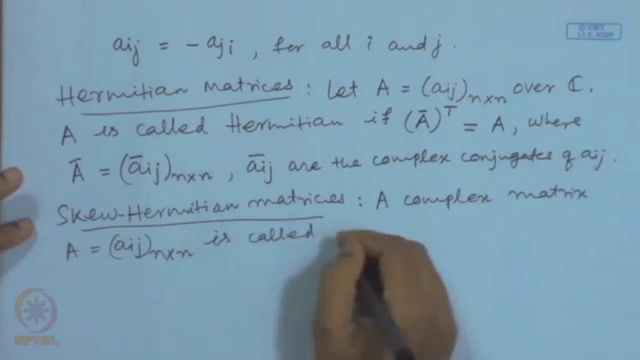 aij = -aji, for all i and j.
© CET
I.I.T. KGP
Hermitian Matrices : Let A = (aij)n×n over ℂ.
A is called Hermitian if (Ā)ᵀ = A, where
Ā = (āij)n×n, āij are the complex conjugates of aij.
Skew-Hermitian matrices : A complex matrix
A = (aij)n×n is called
NPTEL